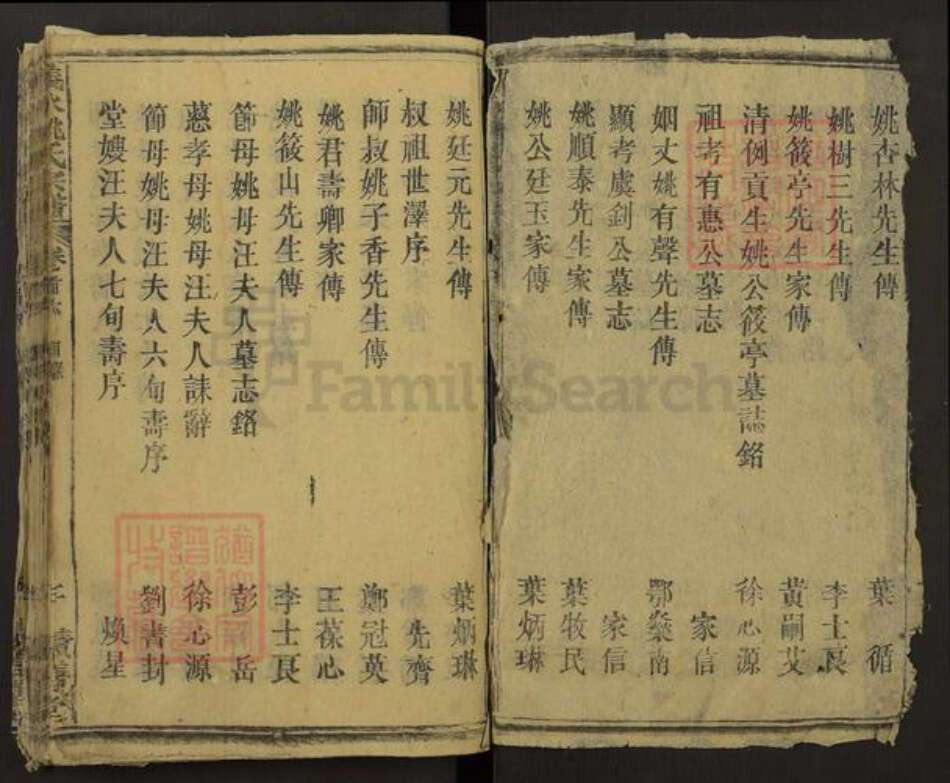 姚杏林先生傳 葉循
姚樹三先生傳 李士良
姚筱亭先生家傳 黃嗣艾
清例貢生姚公筱亭墓誌銘 徐心源
祖考有惠公墓志 家信
姻丈姚有聲先生傳 鄂燊南
顯考虞釗公墓志 家信
姚順泰先生家傳 葉牧民
姚公廷玉家傳 葉炳琳
姚廷元先生傳 葉炳琳
叔祖世澤序 先齊
師叔姚子香先生傳 鄭冠英
姚君壽卿家傳 王葆心
姚筱山先生傳 李士良
節母姚母汪夫人墓志銘 彭岳
慈孝母姚母汪夫人誄辭 徐心源
節母姚母汪夫人六旬壽序 劉書封
堂嫂汪夫人七旬壽序 煥星
姚氏宗譜 卷首
FamilySearch